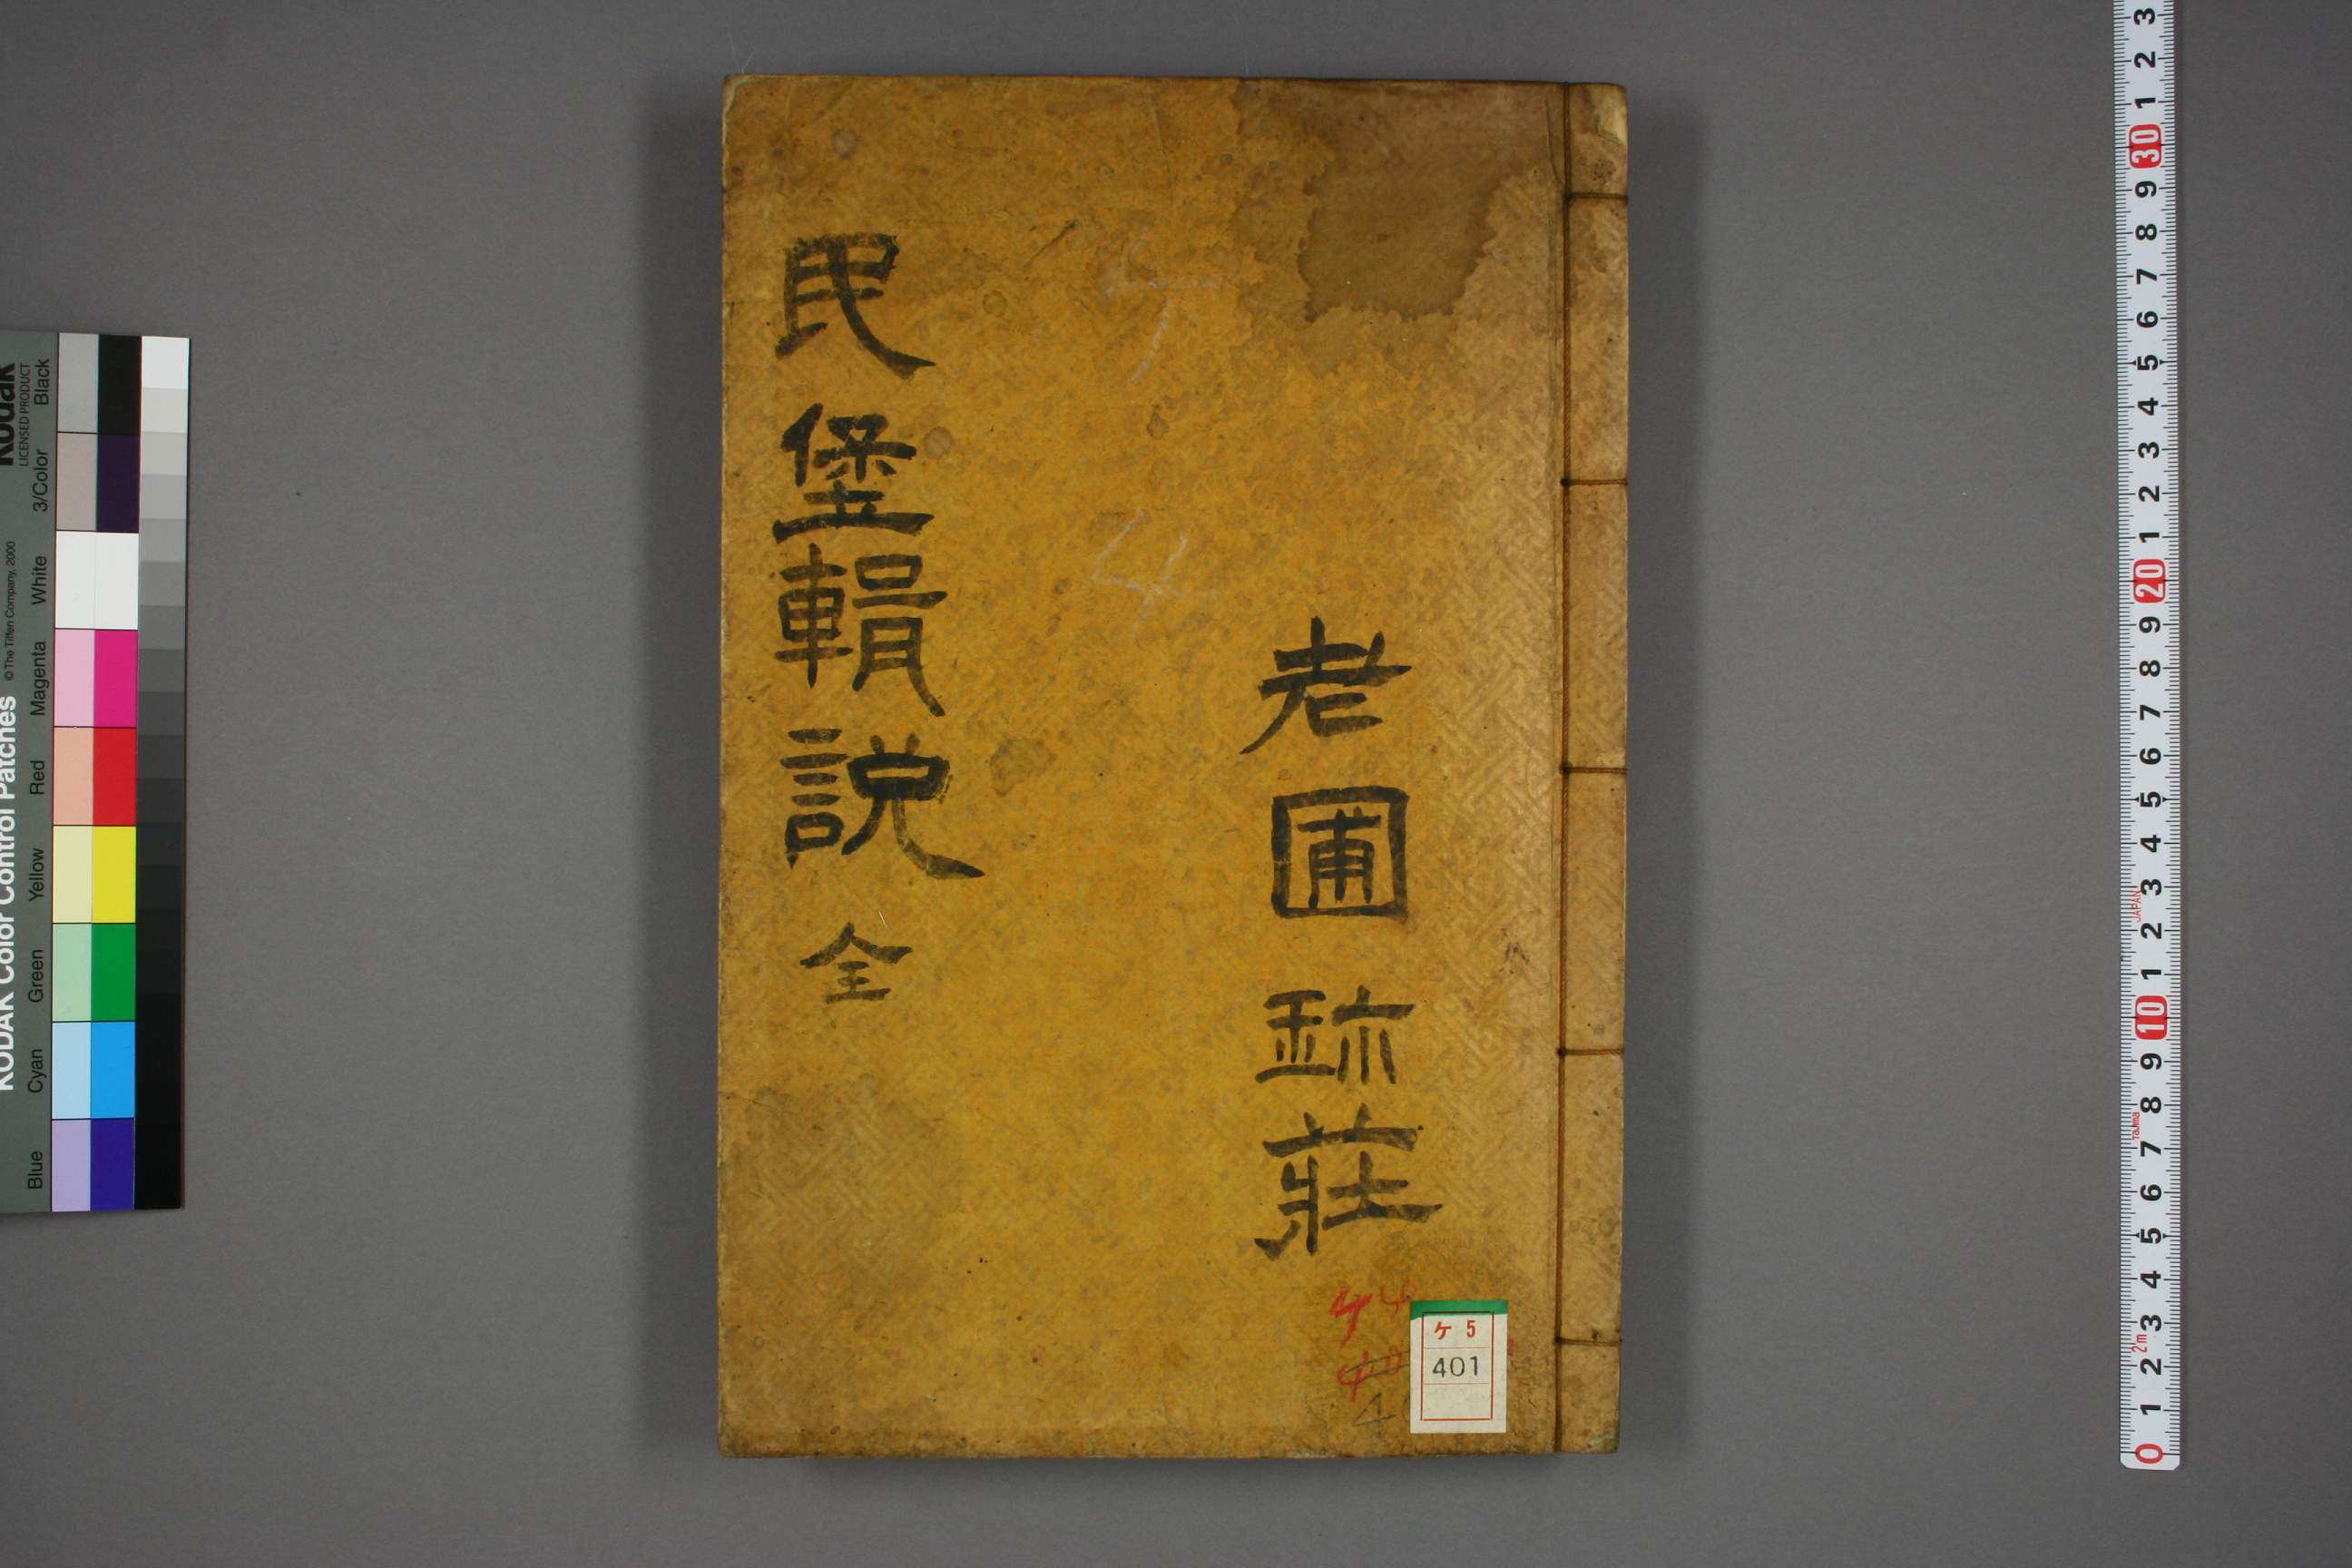 老圃珎莊
民堡輯說 全
ケ 5
401
KODAK Color Control Patches
© The Tiffen Company, 2000
Kodak
LICENSED PRODUCT
Blue Cyan Green Yellow Red Magenta White 3/Color Black
3 2 1 30 9 8 7 6 5 4 3 2 1 20 9 8 7 6 5 4 3 2 1 10 9 8 7 6 5 4 3 2 1 0
JAPAN
Tajima
2m